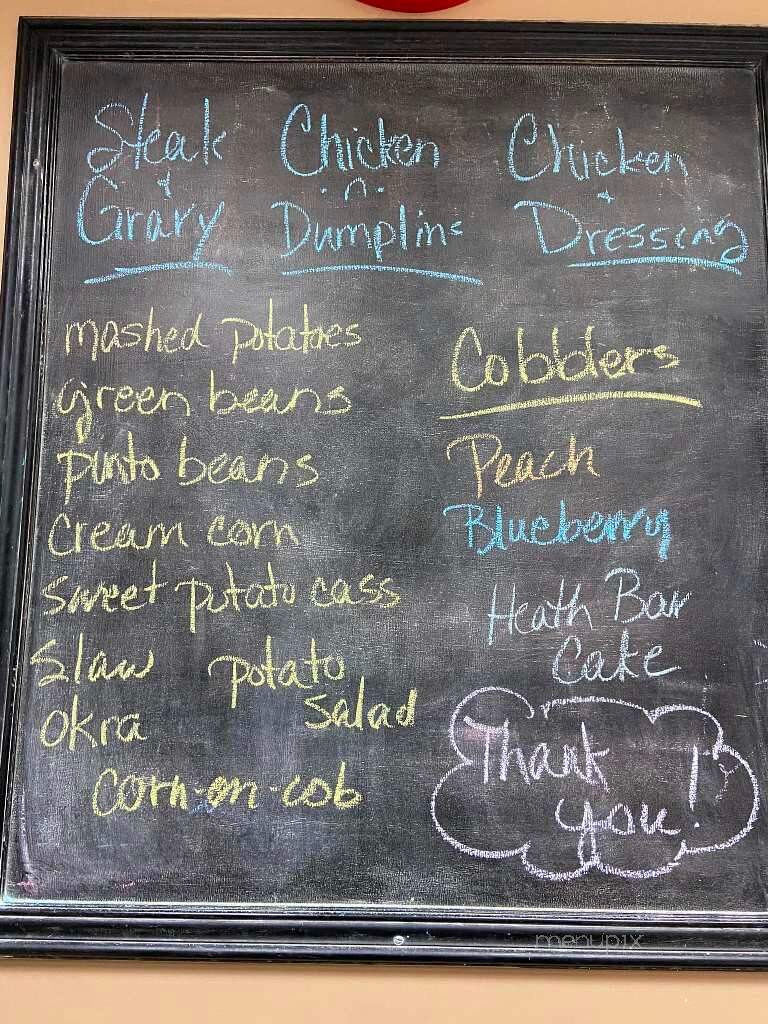 Steak
&
Gravy
Chicken
-n-
Dumplins
Chicken
+
Dressing
mashed potatoes
green beans
pinto beans
cream corn
sweet potato cass
slaw
potato
salad
okra
corn-on-cob
Cobblers
Peach
Blueberry
Heath Bar
Cake
Thank
you!
menupix